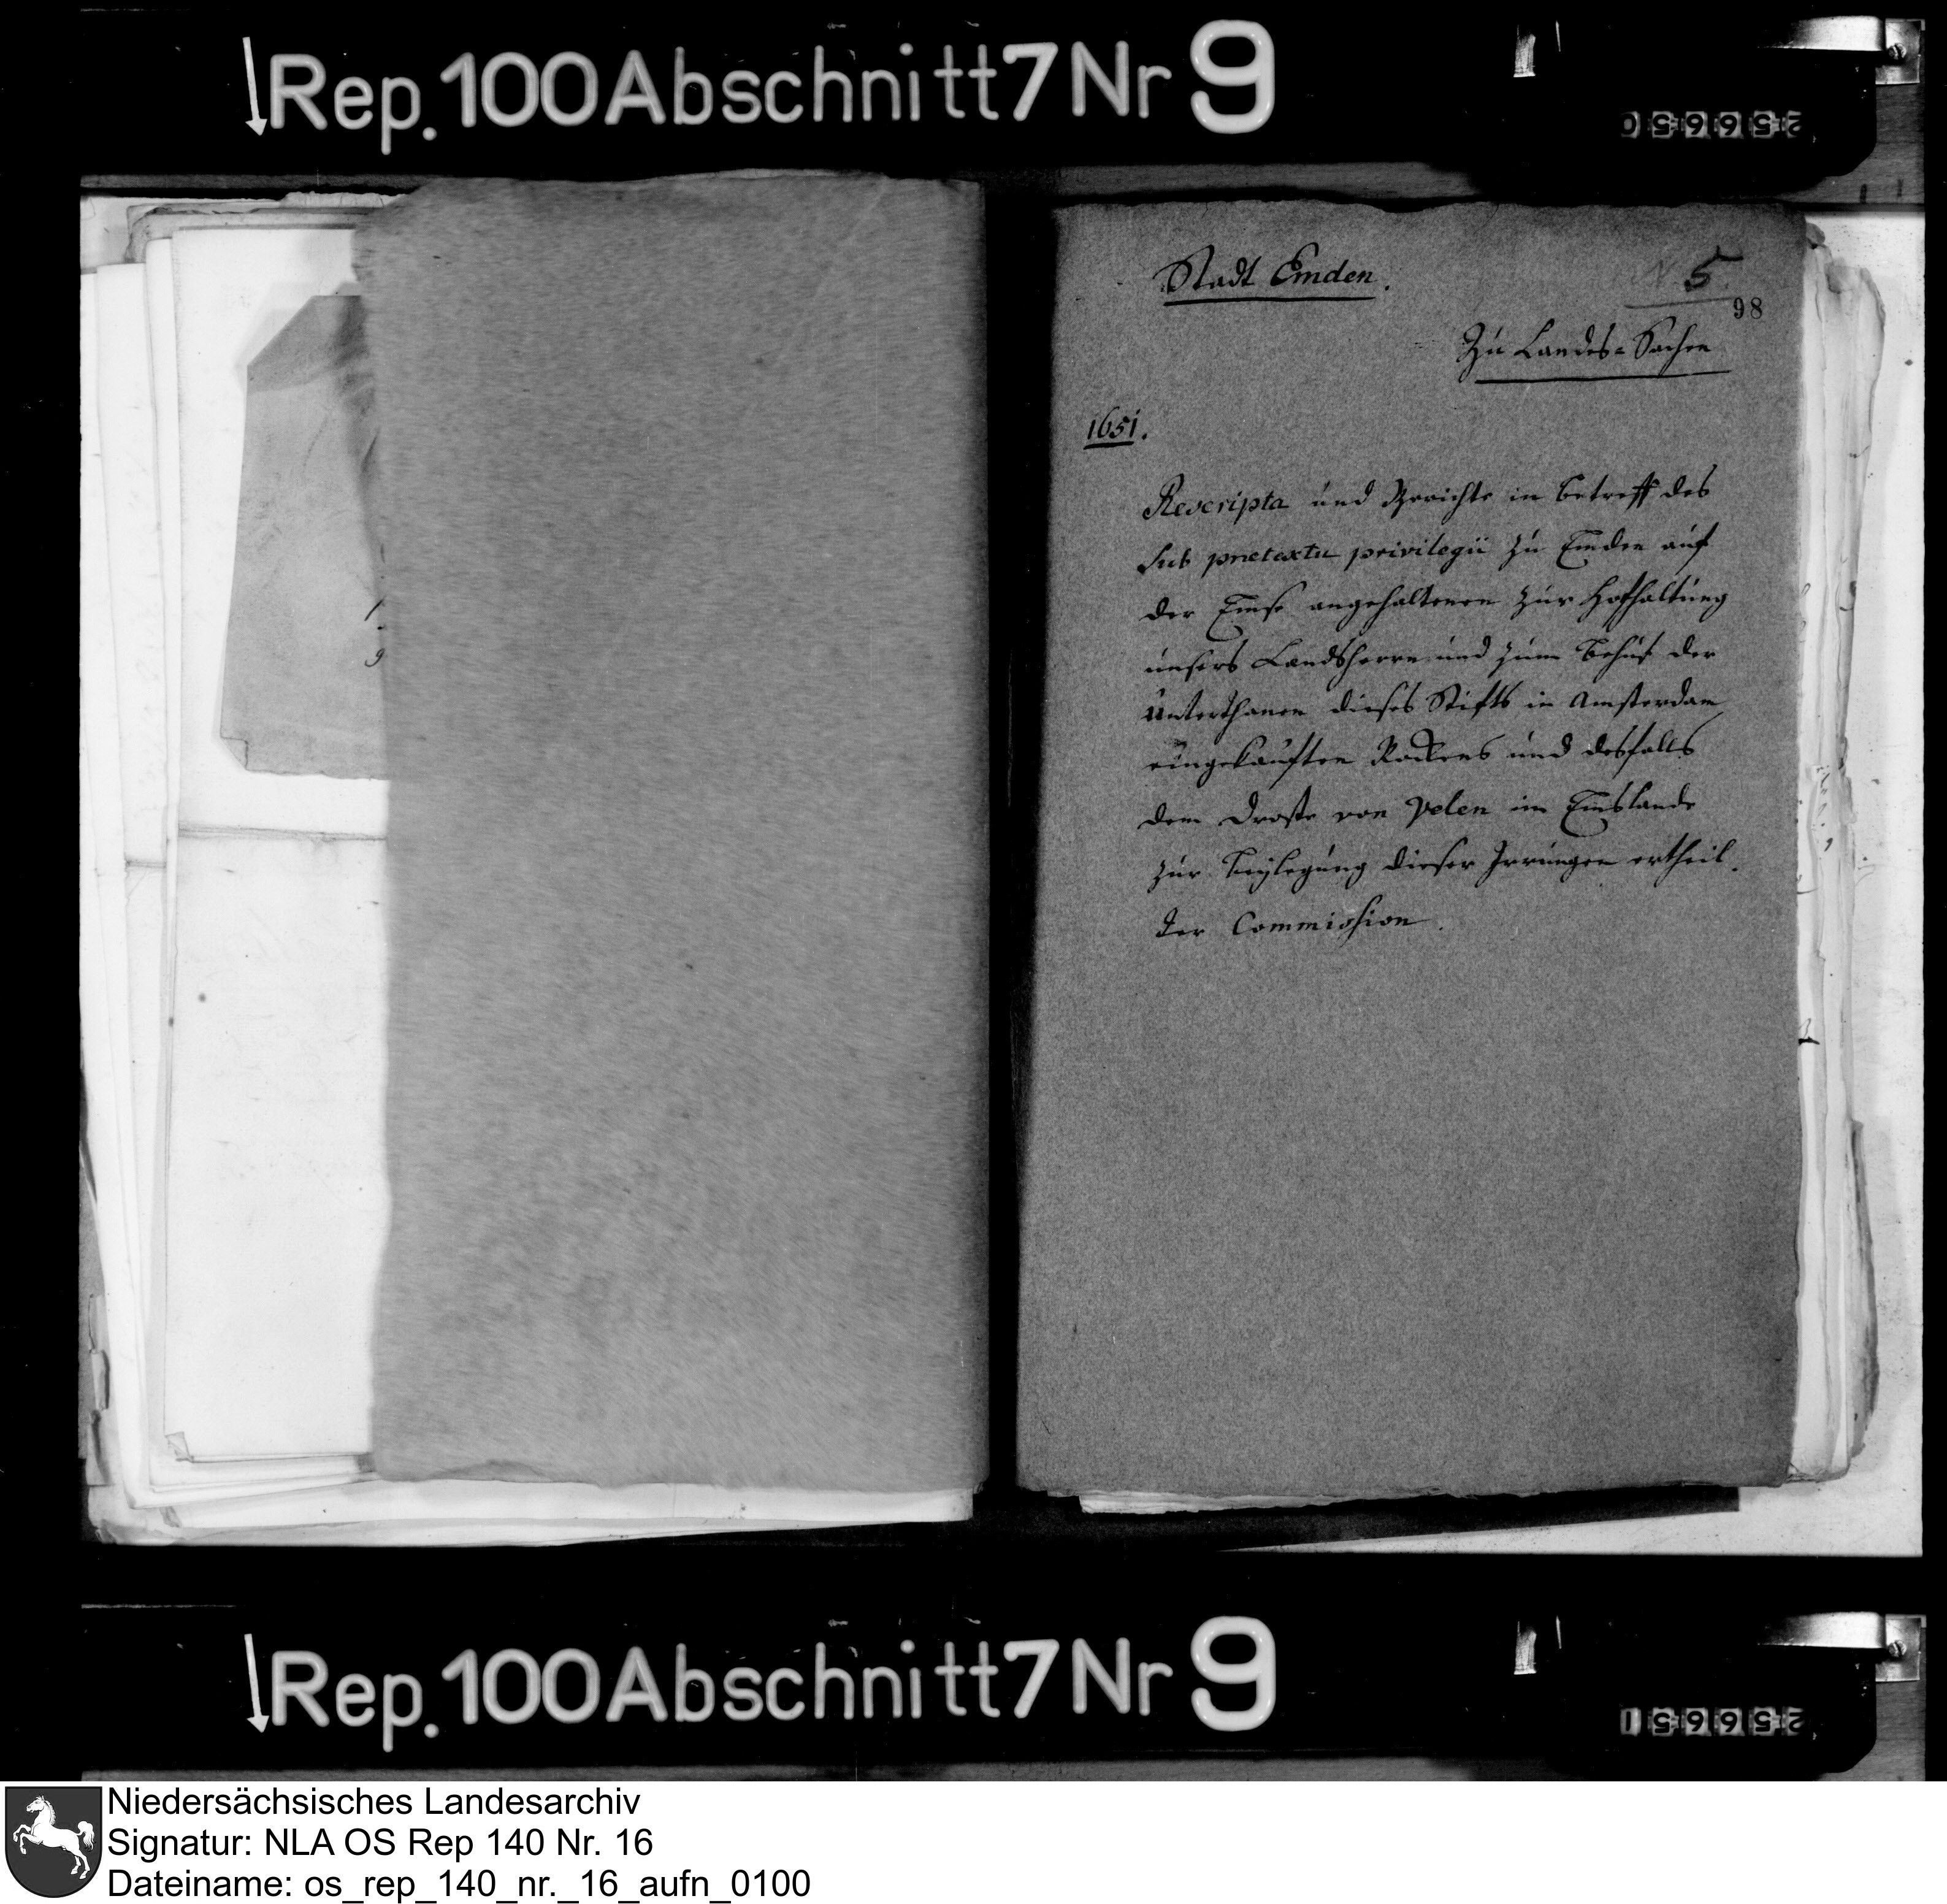 Rep. 100 Abschnitt 7 Nr 9
256650
Stadt Emden.
N. 5.
98
Zu Landes-Sachen
1651.
Rescripta und Berichte in Betreff des
sub praetextu privilegii zu Emden auf
der Emse angehaltenen zur Hofhaltung
unsers Landsherrn und zum Behuf der
Unterthanen dieses Stifts in Amsterdam
eingekauften Rockens und desfalls
dem Droste von Velen im Emslande
zur Beylegung dieser Irrungen ertheil-
ter Commission.
Rep. 100 Abschnitt 7 Nr 9
256651
Niedersächsisches Landesarchiv
Signatur: NLA OS Rep 140 Nr. 16
Dateiname: os_rep_140_nr._16_aufn_0100